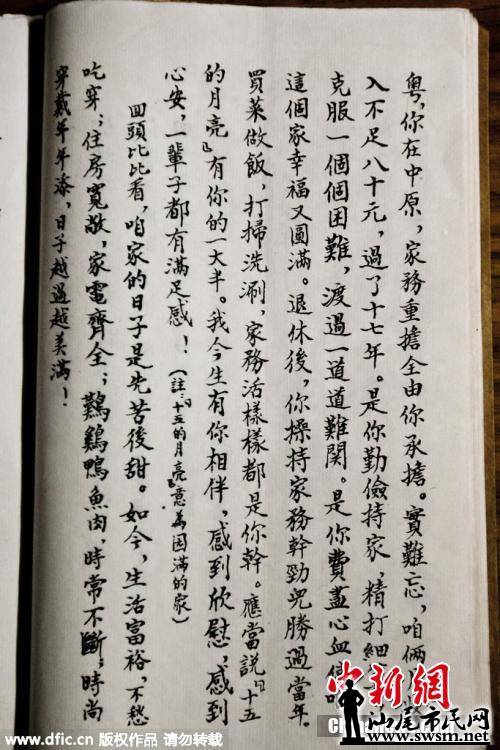 粵，你在中原，家務重擔全由你承擔。實難忘，咱倆
入不足八十元，過了十七年。是你勤儉持家，精打細
克服一個個困難，渡過一道道難関。是你費盡心血
這個家幸福又圓滿。退休後，你操持家務幹勁兒勝過當年
買菜做飯，打掃洗涮，家務活樣樣都是你幹。應當説『十五
的月亮』有你的一大半。我今生有你相伴，感到欣慰，感到
心安，一輩子都有滿足感！（註：『十五的月亮』意為圆滿的家）
回頭比比看，咱家的日子是先苦後甜。如今，生活富裕，不愁
吃穿；住房寬敞，家電齊全；鷄鴨魚肉，時常不斷；時尚
穿戴年年添，日子越過越美滿！
中新網
汕尾市民网
www.swsm.net
www.dfic.cn 版权作品 请勿转载